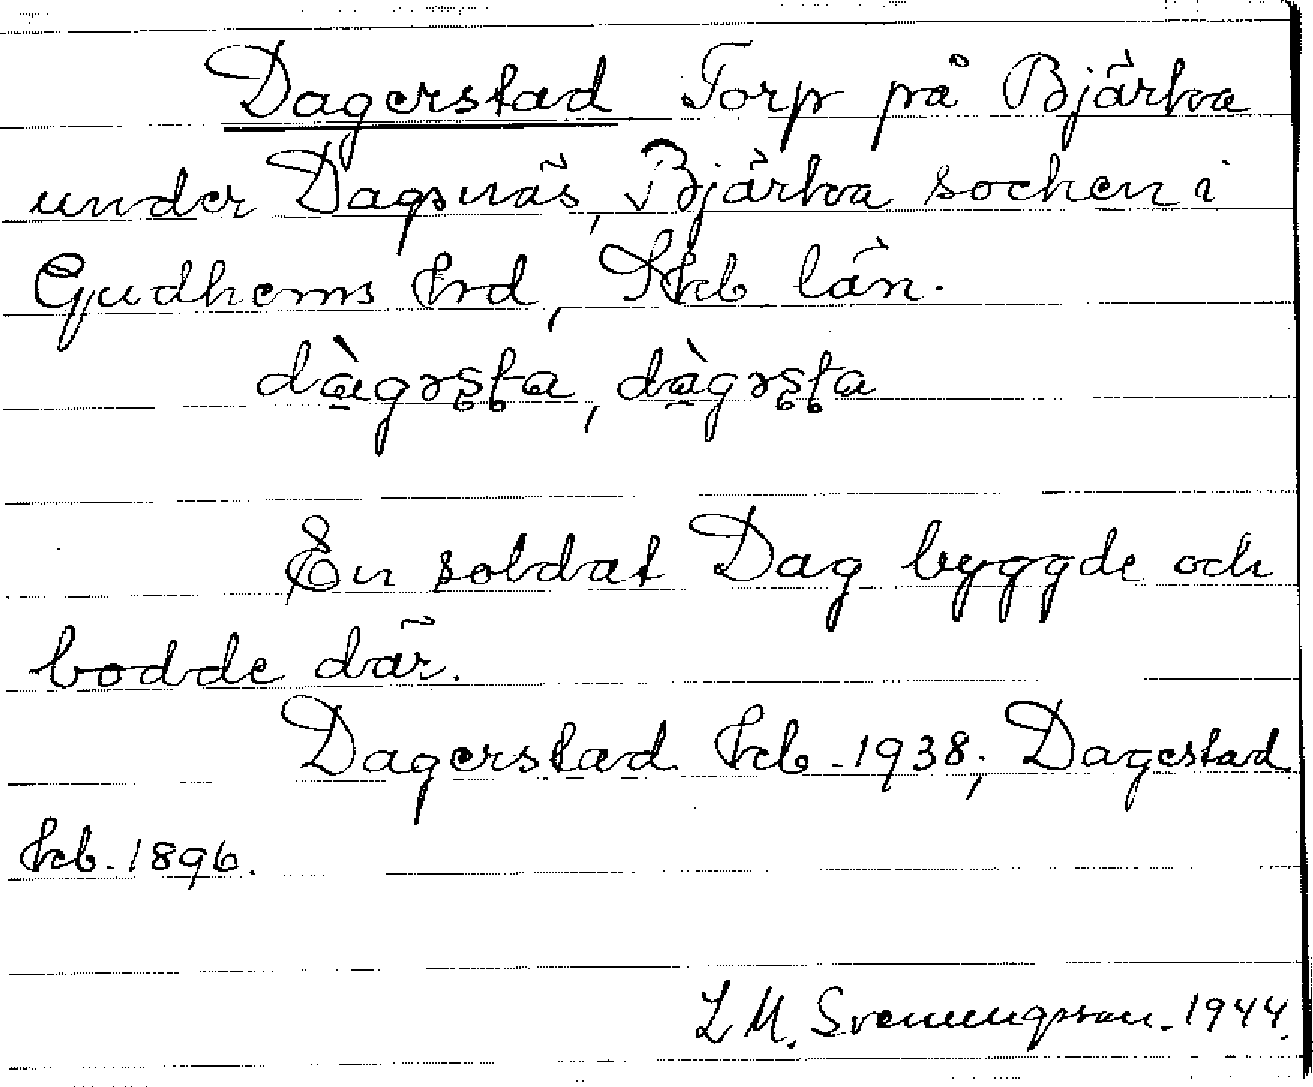 Dagerstad Torp på Bjärka
under Dagsnäs, Bjärka socken i
Gudhems hrd, Skb län.
dàgrsta, dàgrsta
En soldat Dag byggde och
bodde där.
Dagerstad kb. 1938; Dagestad
kb. 1896.
L M. Svenungsson. 1944.